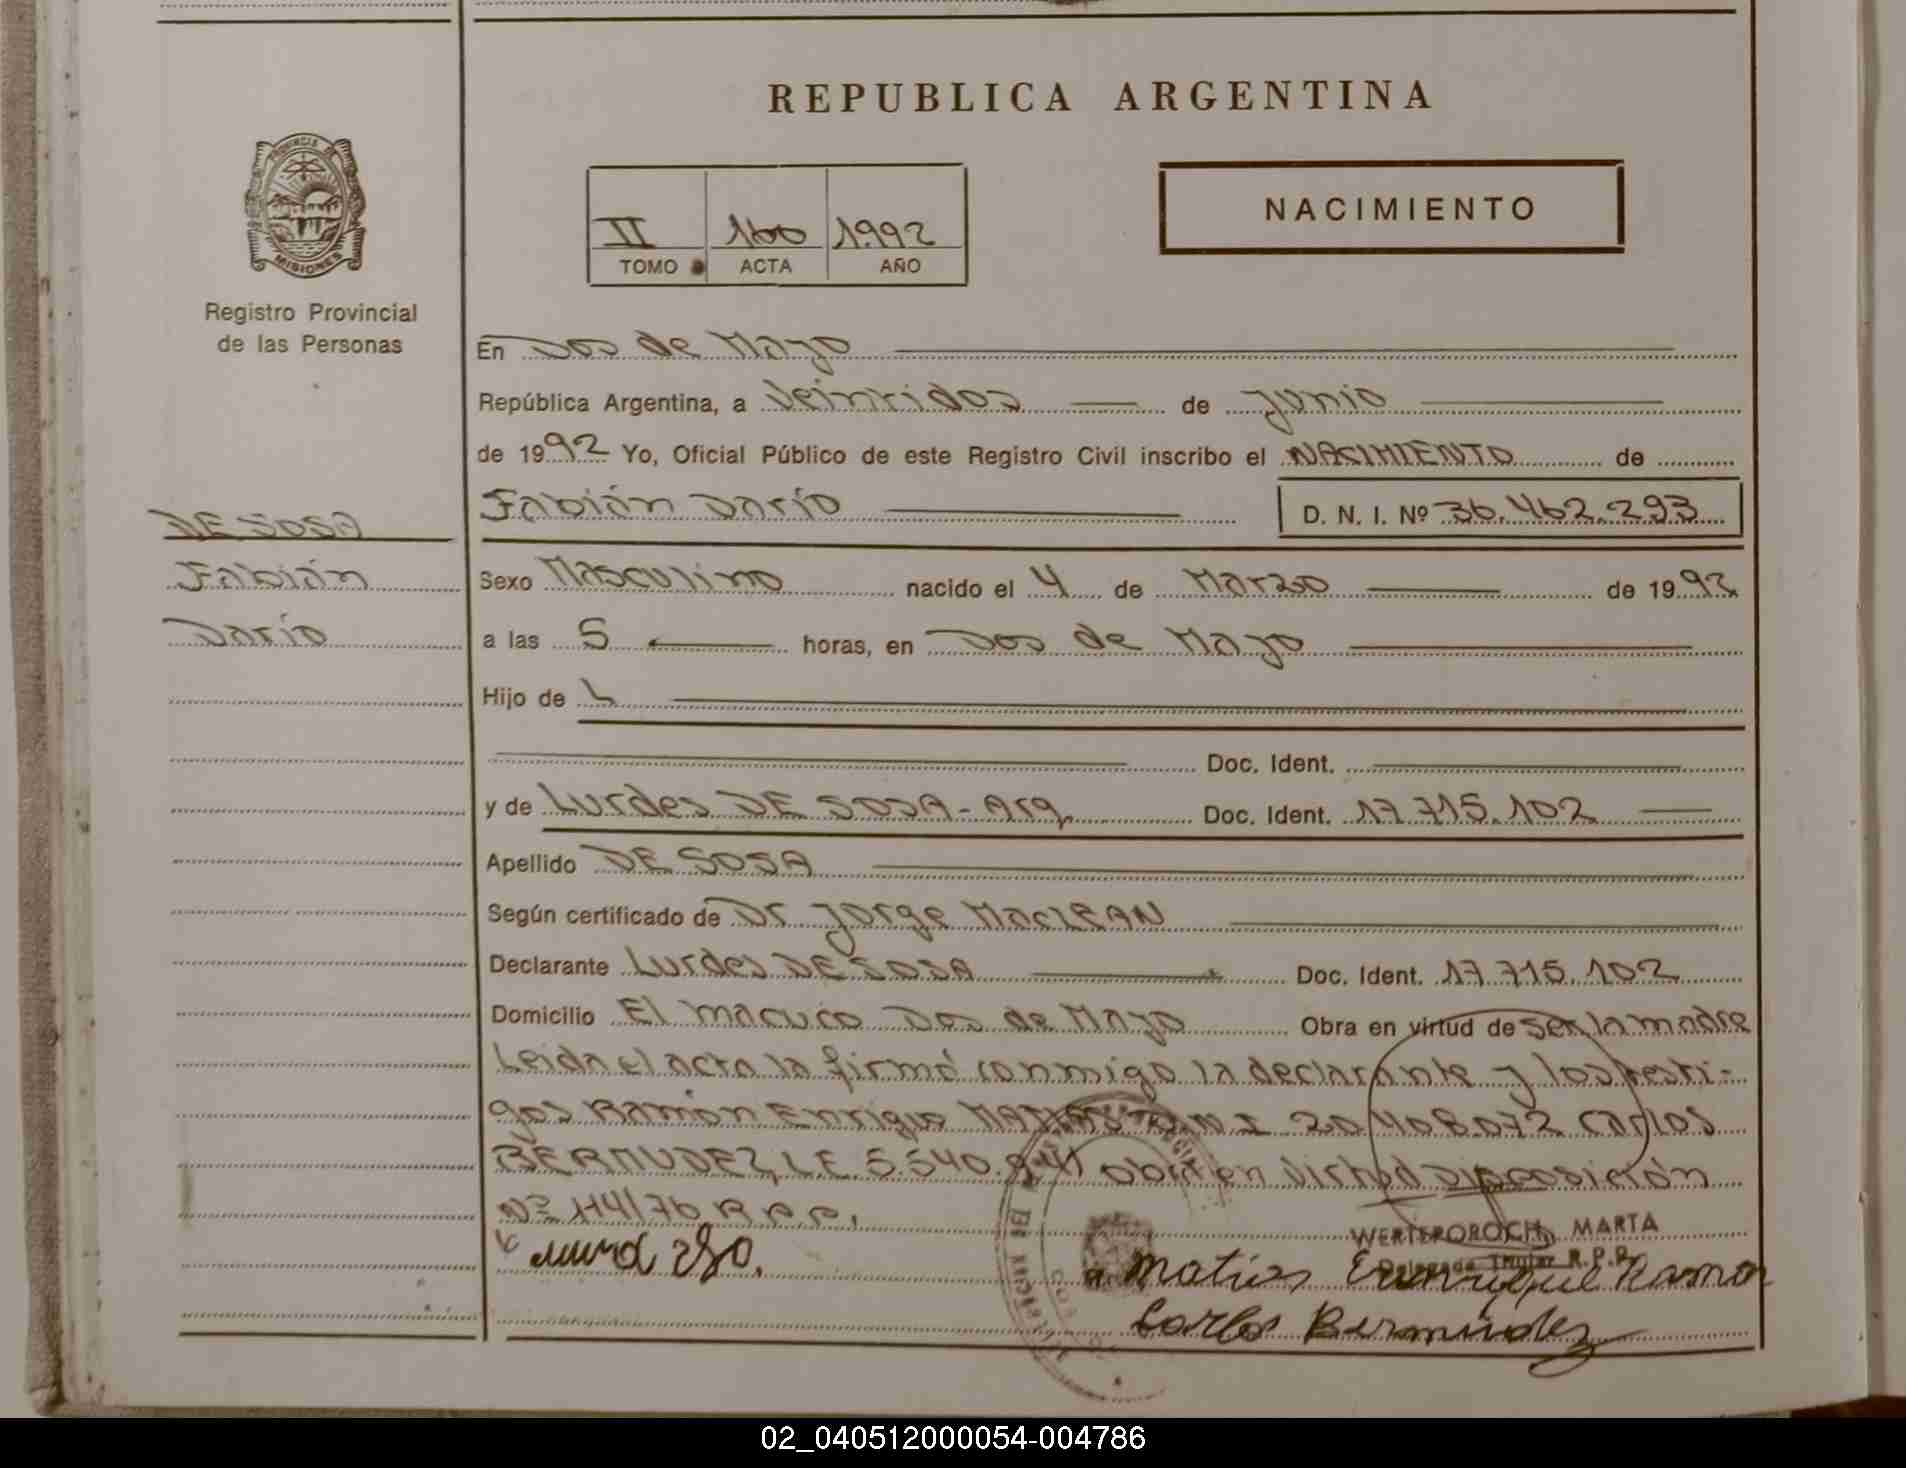 REPUBLICA ARGENTINA
PROVINCIA DE
MISIONES
Registro Provincial
de las Personas
II 160 1992
TOMO ACTA AÑO
NACIMIENTO
En Dos de Mayo
República Argentina, a Veintidos de junio
de 1992 Yo, Oficial Público de este Registro Civil inscribo el NACIMIENTO de
Fabián Darío D. N. I. Nº 36.462.293
DE SOSA
Fabián
Darío
Sexo Masculino nacido el 4 de Marzo de 1992
a las 5 horas, en Dos de Mayo
Hijo de
Doc. Ident.
y de Lurdes DE SOSA - Arg. Doc. Ident. 17.715.102
Apellido DE SOSA
Según certificado de Dr Jorge MacLEAN
Declarante Lurdes DE SOSA Doc. Ident. 17.715.102
Domicilio El macuco Dos de Mayo Obra en virtud de ser la madre
Leida el acta la firmó conmigo la declarante y los testi-
gos Ramón Enrique D.N.I 20.408.072 Carlos
BERMUDEZ, L.E. 5.540.941 obra en virtud Disposición
Nº 114/76 R.P.P.
WERTEPOROCH, MARTA
Delegada Titular R.P.P.
Matias Enrrique Ramon
Carlos Bermudez
02_040512000054-004786